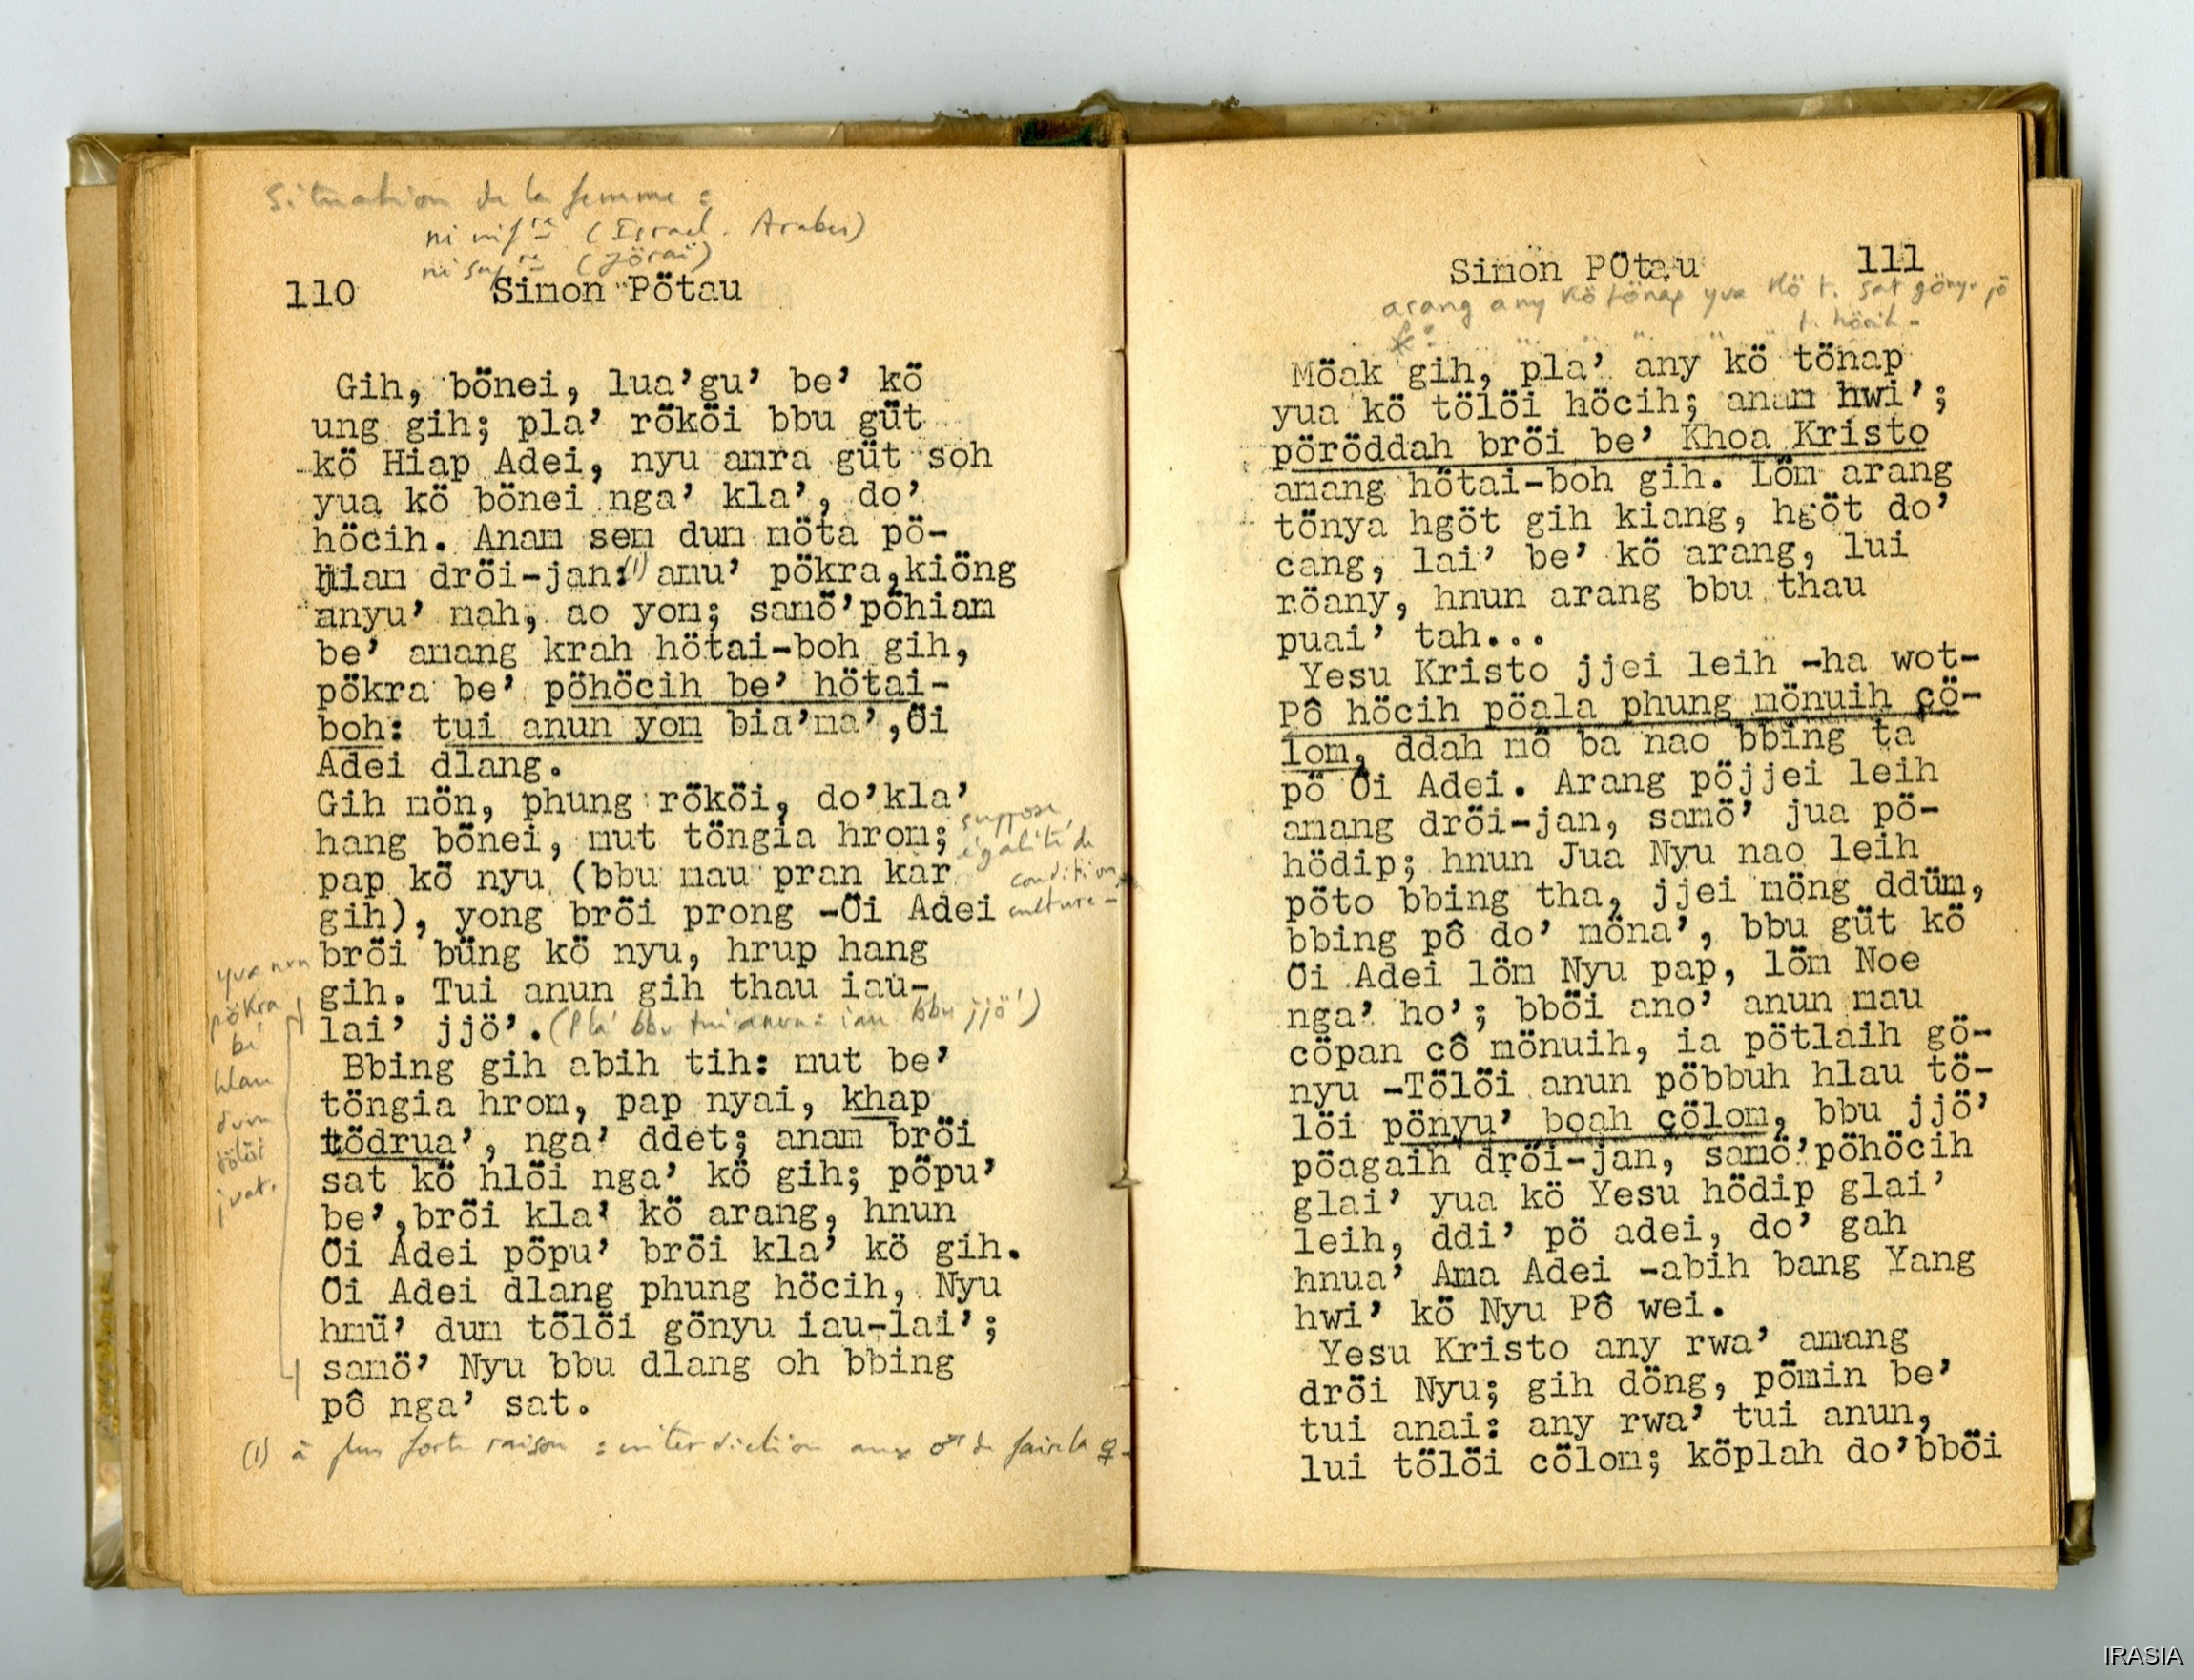 Situation de la femme :
ni infre (Israel. Arabes)
ni supre (Jörai)
110 Simon Pötau
Gih, bönei, lua’gu’ be’ kö
ung gih; pla’ rököi bbu güt
kö Hiap Adei, nyu amra güt soh
yua kö bönei nga’ kla’, do’
höcih. Anam sem dum möta pö-
hiam dröi-jan:(1) amu’ pökra,kiöng
anyu’ mah, ao yom; samö’pöhiam
be’ amang krah hötai-boh gih,
pökra be’ pöhöcih be’ hötai-
boh: tui anun yom bia’ma’,Öi
Adei dlang.
Gih mön, phung rököi, do’kla’
hang bönei, mut töngia hrom;
pap kö nyu (bbu mau pran kar
gih), yong bröi prong -Öi Adei
bröi büng kö nyu, hrup hang
gih. Tui anun gih thau iau-
lai’ jjö’. (Pla’ bbu tui anun: iau bbu jjö’)
suppose
égalité de
condition,
culture-
Bbing gih abih tih: mut be’
töngia hrom, pap nyai, khap
tödrua’, nga’ ddet; anam bröi
sat kö hlöi nga’ kö gih; pöpu’
be’,bröi kla’ kö arang, hnun
Öi Adei pöpu’ bröi kla’ kö gih.
Öi Adei dlang phung höcih, Nyu
hmü’ dum tölöi gönyu iau-lai’;
samö’ Nyu bbu dlang oh bbing
pô nga’ sat.
yua nun
pökra
bi
hlau
dum
tölöi
juat.
(1) à plus forte raison : interdiction aux ♂ de faire la ♀-
Simon PÖtau 111
arang any kö tönap yua kö t. sat gönyu jö
t. höcih-
Möak gih, pla’ any kö tönap
yua kö tölöi höcih; anam hwi’;
pöröddah bröi be’ Khoa Kristo
amang hötai-boh gih. Löm arang
tönya hgöt gih kiang, hgöt do’
cang, lai’ be’ kö arang, lui
röany, hnun arang bbu thau
puai’ tah...
Yesu Kristo jjei leih -ha wot-
Pô höcih pöala phung mönuih çö-
lom, ddah mö ba nao bbing ta
pö Öi Adei. Arang pöjjei leih
amang dröi-jan, samö’ jua pö-
hödip; hnun Jua Nyu nao leih
pöto bbing tha, jjei möng ddüm,
bbing pô do’ möna’, bbu güt kö
Öi Adei löm Nyu pap, löm Noe
nga’ ho’; bböi ano’ anun mau
cöpan cô mönuih, ia pötlaih gö-
nyu -Tölöi anun pöbbuh hlau tö-
löi pönyu’ boah çölom, bbu jjö’
pöagaih dröi-jan, samö’pöhöcih
glai’ yua kö Yesu hödip glai’
leih, ddi’ pö adei, do’ gah
hnua’ Ama Adei -abih bang Yang
hwi’ kö Nyu Pô wei.
Yesu Kristo any rwa’ amang
dröi Nyu; gih döng, pömin be’
tui anai: any rwa’ tui anun,
lui tölöi cölom; köplah do’bböi
IRASIA